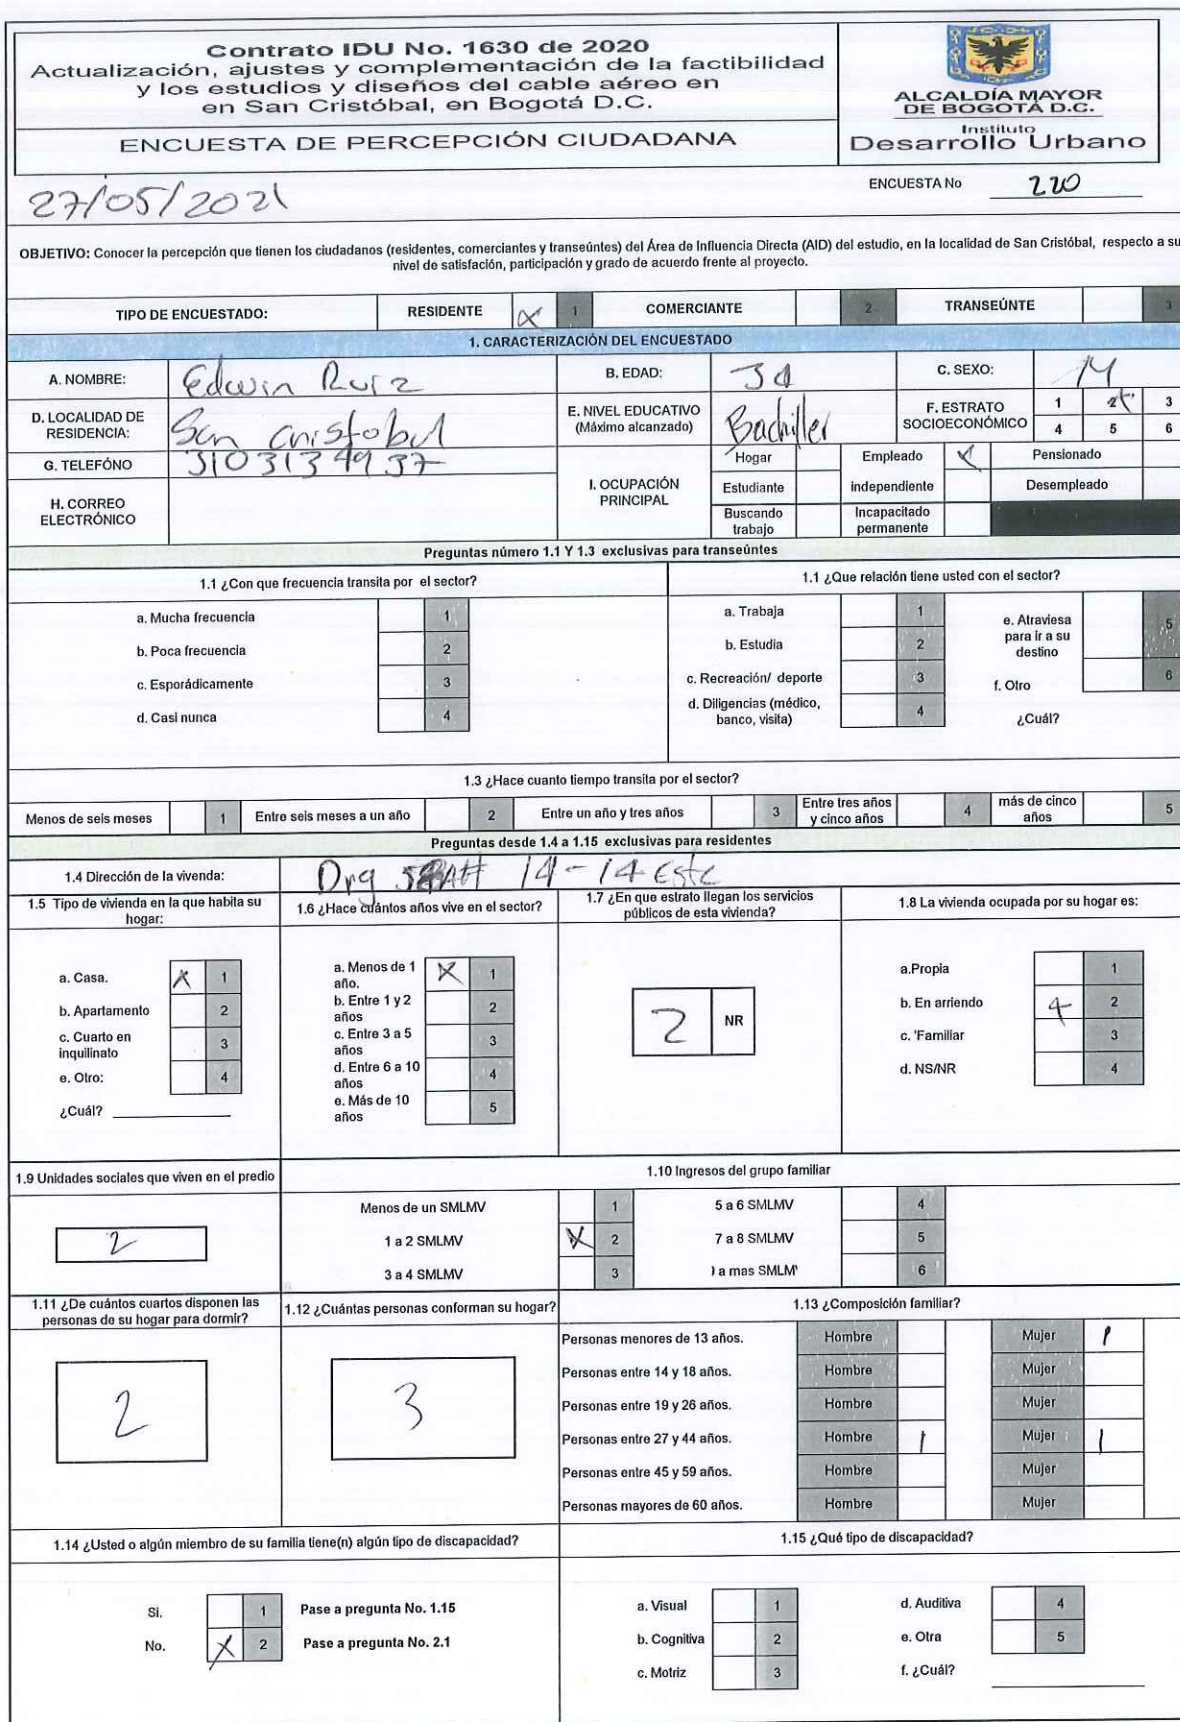 Contrato IDU No. 1630 de 2020
Actualización, ajustes y complementación de la factibilidad
y los estudios y diseños del cable aéreo en
en San Cristóbal, en Bogotá D.C.
ENCUESTA DE PERCEPCIÓN CIUDADANA
ALCALDÍA MAYOR
DE BOGOTÁ D.C.
Instituto
Desarrollo Urbano
27/05/2021
ENCUESTA No 220
OBJETIVO: Conocer la percepción que tienen los ciudadanos (residentes, comerciantes y transeúntes) del Área de Influencia Directa (AID) del estudio, en la localidad de San Cristóbal, respecto a su
nivel de satisfacción, participación y grado de acuerdo frente al proyecto.
TIPO DE ENCUESTADO: RESIDENTE X 1 COMERCIANTE 2 TRANSEÚNTE 3
1. CARACTERIZACIÓN DEL ENCUESTADO
A. NOMBRE: Edwin Ruiz B. EDAD: C. SEXO:
D. LOCALIDAD DE
RESIDENCIA: San Cristobal
E. NIVEL EDUCATIVO
(Máximo alcanzado) Bachiller
F. ESTRATO
SOCIOECONÓMICO
1 2 3
4 5 6
G. TELEFÓNO 3103134937
H. CORREO
ELECTRÓNICO
I. OCUPACIÓN
PRINCIPAL
Hogar Empleado X Pensionado
Estudiante independiente Desempleado
Buscando
trabajo
Incapacitado
permanente
Preguntas número 1.1 Y 1.3 exclusivas para transeúntes
1.1 ¿Con que frecuencia transita por el sector?
a. Mucha frecuencia 1
b. Poca frecuencia 2
c. Esporádicamente 3
d. Casi nunca 4
1.1 ¿Que relación tiene usted con el sector?
a. Trabaja 1
b. Estudia 2
c. Recreación/ deporte 3
d. Diligencias (médico,
banco, visita) 4
e. Atraviesa
para ir a su
destino 5
f. Otro 6
¿Cuál?
1.3 ¿Hace cuanto tiempo transita por el sector?
Menos de seis meses 1 Entre seis meses a un año 2 Entre un año y tres años 3 Entre tres años
y cinco años 4 más de cinco
años 5
Preguntas desde 1.4 a 1.15 exclusivas para residentes
1.4 Dirección de la vivenda: 14-14 Este
1.5 Tipo de vivienda en la que habita su
hogar:
a. Casa. X 1
b. Apartamento 2
c. Cuarto en
inquilinato 3
e. Otro: 4
¿Cuál?
1.6 ¿Hace cuántos años vive en el sector?
a. Menos de 1
año. X 1
b. Entre 1 y 2
años 2
c. Entre 3 a 5
años 3
d. Entre 6 a 10
años 4
e. Más de 10
años 5
1.7 ¿En que estrato llegan los servicios
públicos de esta vivienda?
2 NR
1.8 La vivienda ocupada por su hogar es:
a.Propia 1
b. En arriendo X 2
c. 'Familiar 3
d. NS/NR 4
1.9 Unidades sociales que viven en el predio
2
1.10 Ingresos del grupo familiar
Menos de un SMLMV 1 5 a 6 SMLMV 4
1 a 2 SMLMV X 2 7 a 8 SMLMV 5
3 a 4 SMLMV 3 a mas SMLM 6
1.11 ¿De cuántos cuartos disponen las
personas de su hogar para dormir?
2
1.12 ¿Cuántas personas conforman su hogar?
3
1.13 ¿Composición familiar?
Personas menores de 13 años. Hombre Mujer 1
Personas entre 14 y 18 años. Hombre Mujer
Personas entre 19 y 26 años. Hombre Mujer
Personas entre 27 y 44 años. Hombre 1 Mujer 1
Personas entre 45 y 59 años. Hombre Mujer
Personas mayores de 60 años. Hombre Mujer
1.14 ¿Usted o algún miembro de su familia tiene(n) algún tipo de discapacidad?
Si. 1 Pase a pregunta No. 1.15
No. X 2 Pase a pregunta No. 2.1
1.15 ¿Qué tipo de discapacidad?
a. Visual 1 d. Auditiva 4
b. Cognitiva 2 e. Otra 5
c. Motriz 3 f. ¿Cuál?